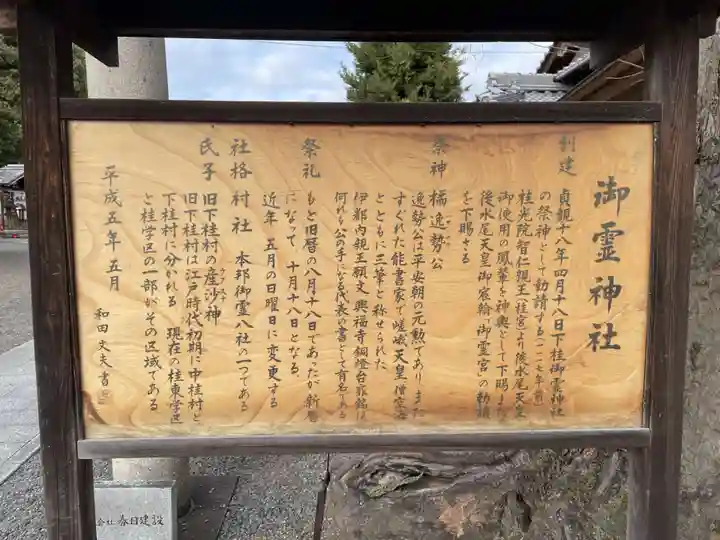 御霊神社
創建 貞観十八年四月十八日下桂御霊神社
の祭神として勧請する(一一一七年前)
桂光院智仁親王(桂宮)より後水尾天皇
御使用の鳳輦を神輿として下賜また
後水尾天皇御宸翰「御霊宮」の勅額
を下賜さる
祭神 橘逸勢公
逸勢公は平安朝の元勲でありまた
すぐれた能書家で嵯峨天皇僧空海
とともに三筆と称せられた
伊都内親王願文 興福寺銅燈台扉銘は
何れも公の手になる代表の書として有名である
祭礼 もと旧暦の八月十八日であったが新暦
になって、十月十八日となる、
近年、五月の日曜日に変更する
社格 村社 本邦御霊八社の一つである
氏子 旧下桂村の産沙神
旧下桂村は江戸時代初期に中桂村と
下桂村に分かれる 現在の桂東学区
と桂学区の一部がその区域である
平成五年五月
和田文夫書
春日建設